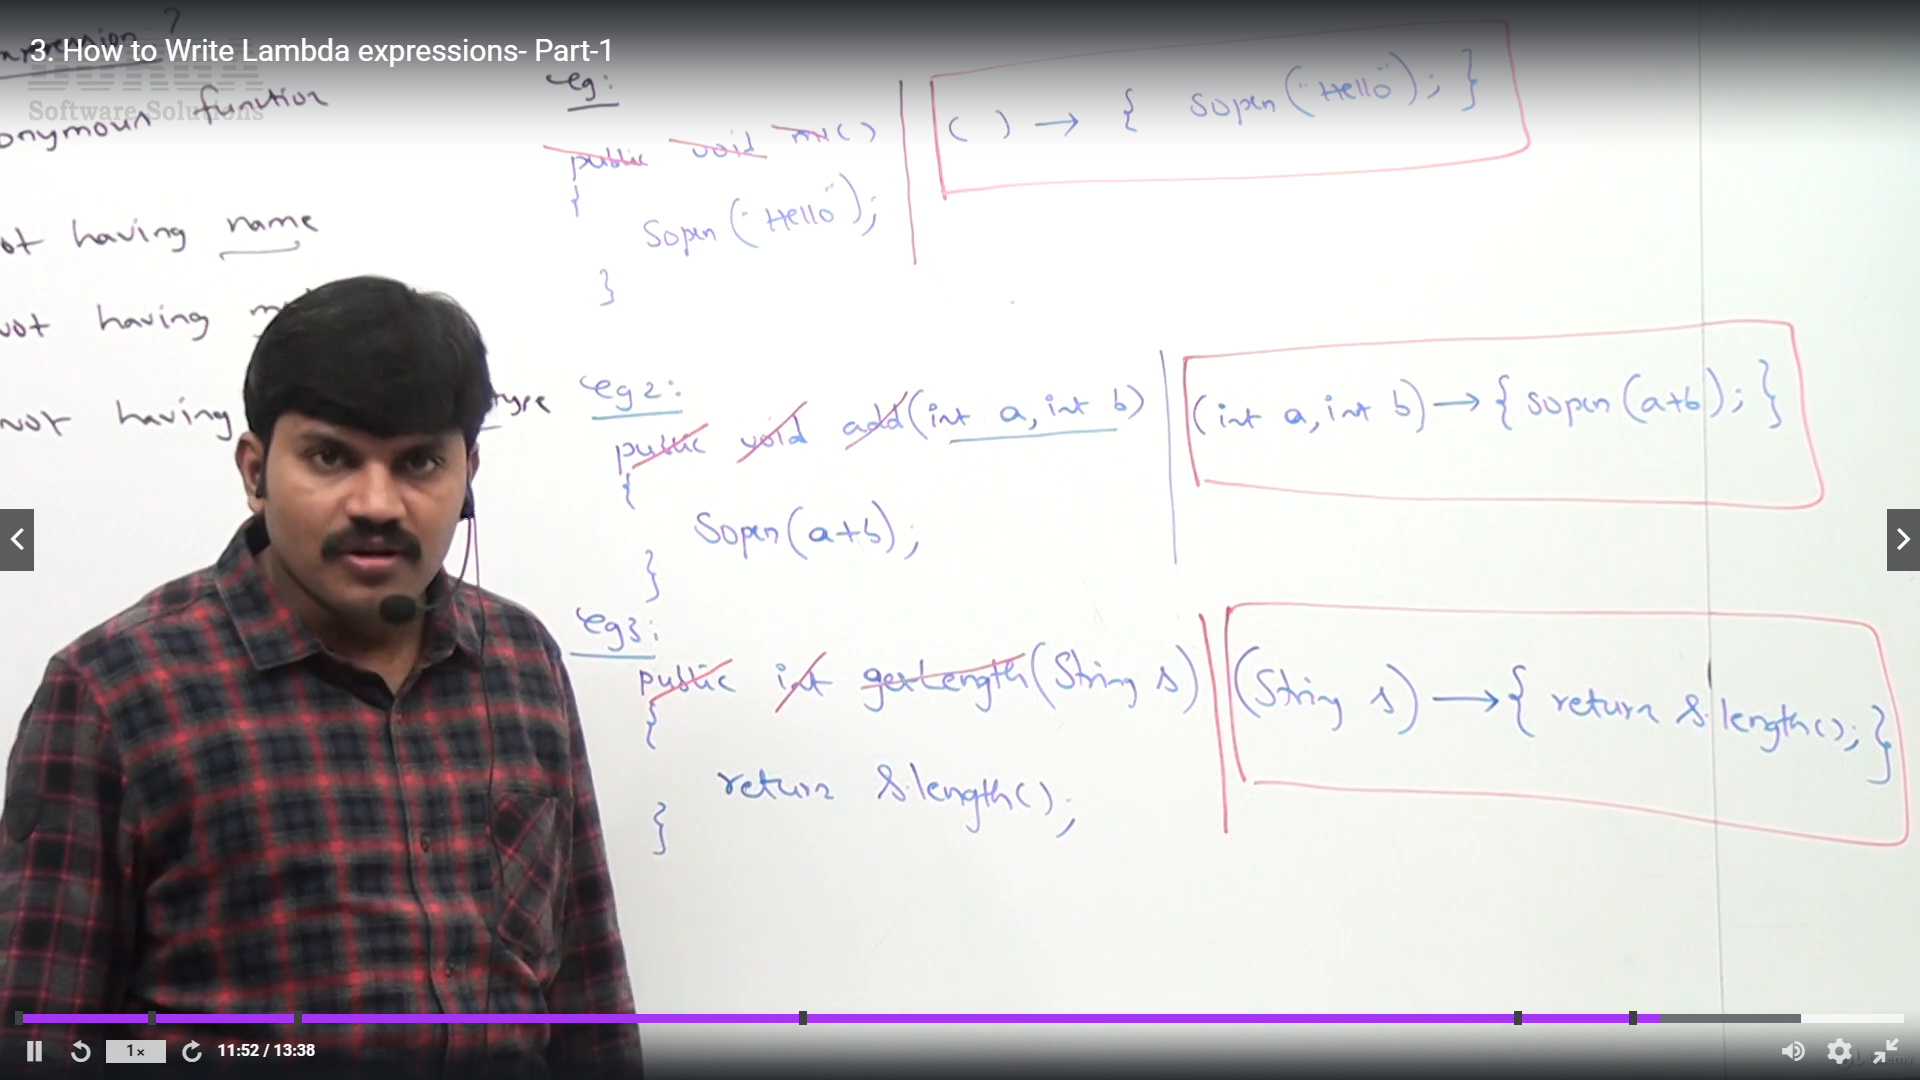 3. How to Write Lambda expressions- Part-1
Software Solutions
function
not having name
not having
not having type
eg:
public void m1()
{
Sopln("Hello");
}
( ) → { Sopln("Hello"); }
eg2:
public void add(int a, int b)
{
Sopln(a+b);
}
(int a, int b) → { sopln(a+b); }
eg3:
public int getLength(String s)
{
return s.length();
}
(String s) → { return s.length(); }
1×
11:52 / 13:38